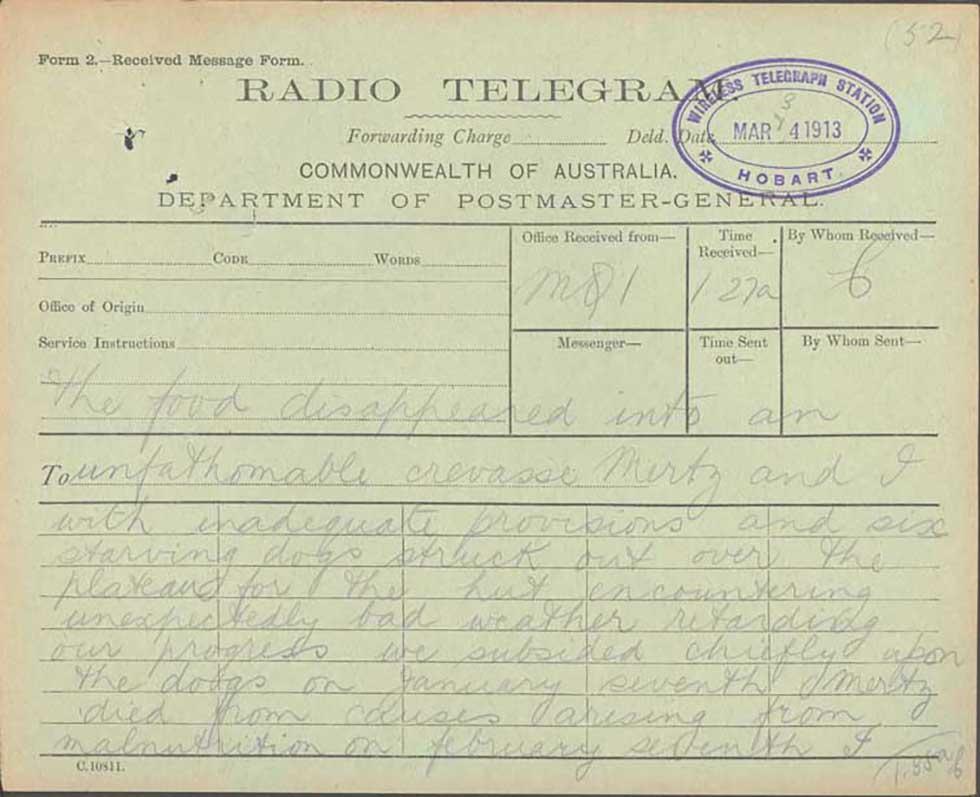 (52)
Form 2.—Received Message Form.
RADIO TELEGRAM.
WIRELESS TELEGRAPH STATION
MAR 4 1913
HOBART
Forwarding Charge Deld. Date
COMMONWEALTH OF AUSTRALIA.
DEPARTMENT OF POSTMASTER-GENERAL.
PREFIX CODE WORDS
Office of Origin
Service Instructions
Office Received from—
Time Received—
By Whom Received—
1 27a
Messenger—
Time Sent out—
By Whom Sent—
The food disappeared into an
To unfathomable crevasse Mertz and I
with inadequate provisions and six
starving dogs struck out over the
plateau for the hut encountering
unexpectedly bad weather retarding
our progress we subsided chiefly upon
the doogs on January seventh Mertz
died from causes arising from
malnutrition on february seventh I
C.10811.